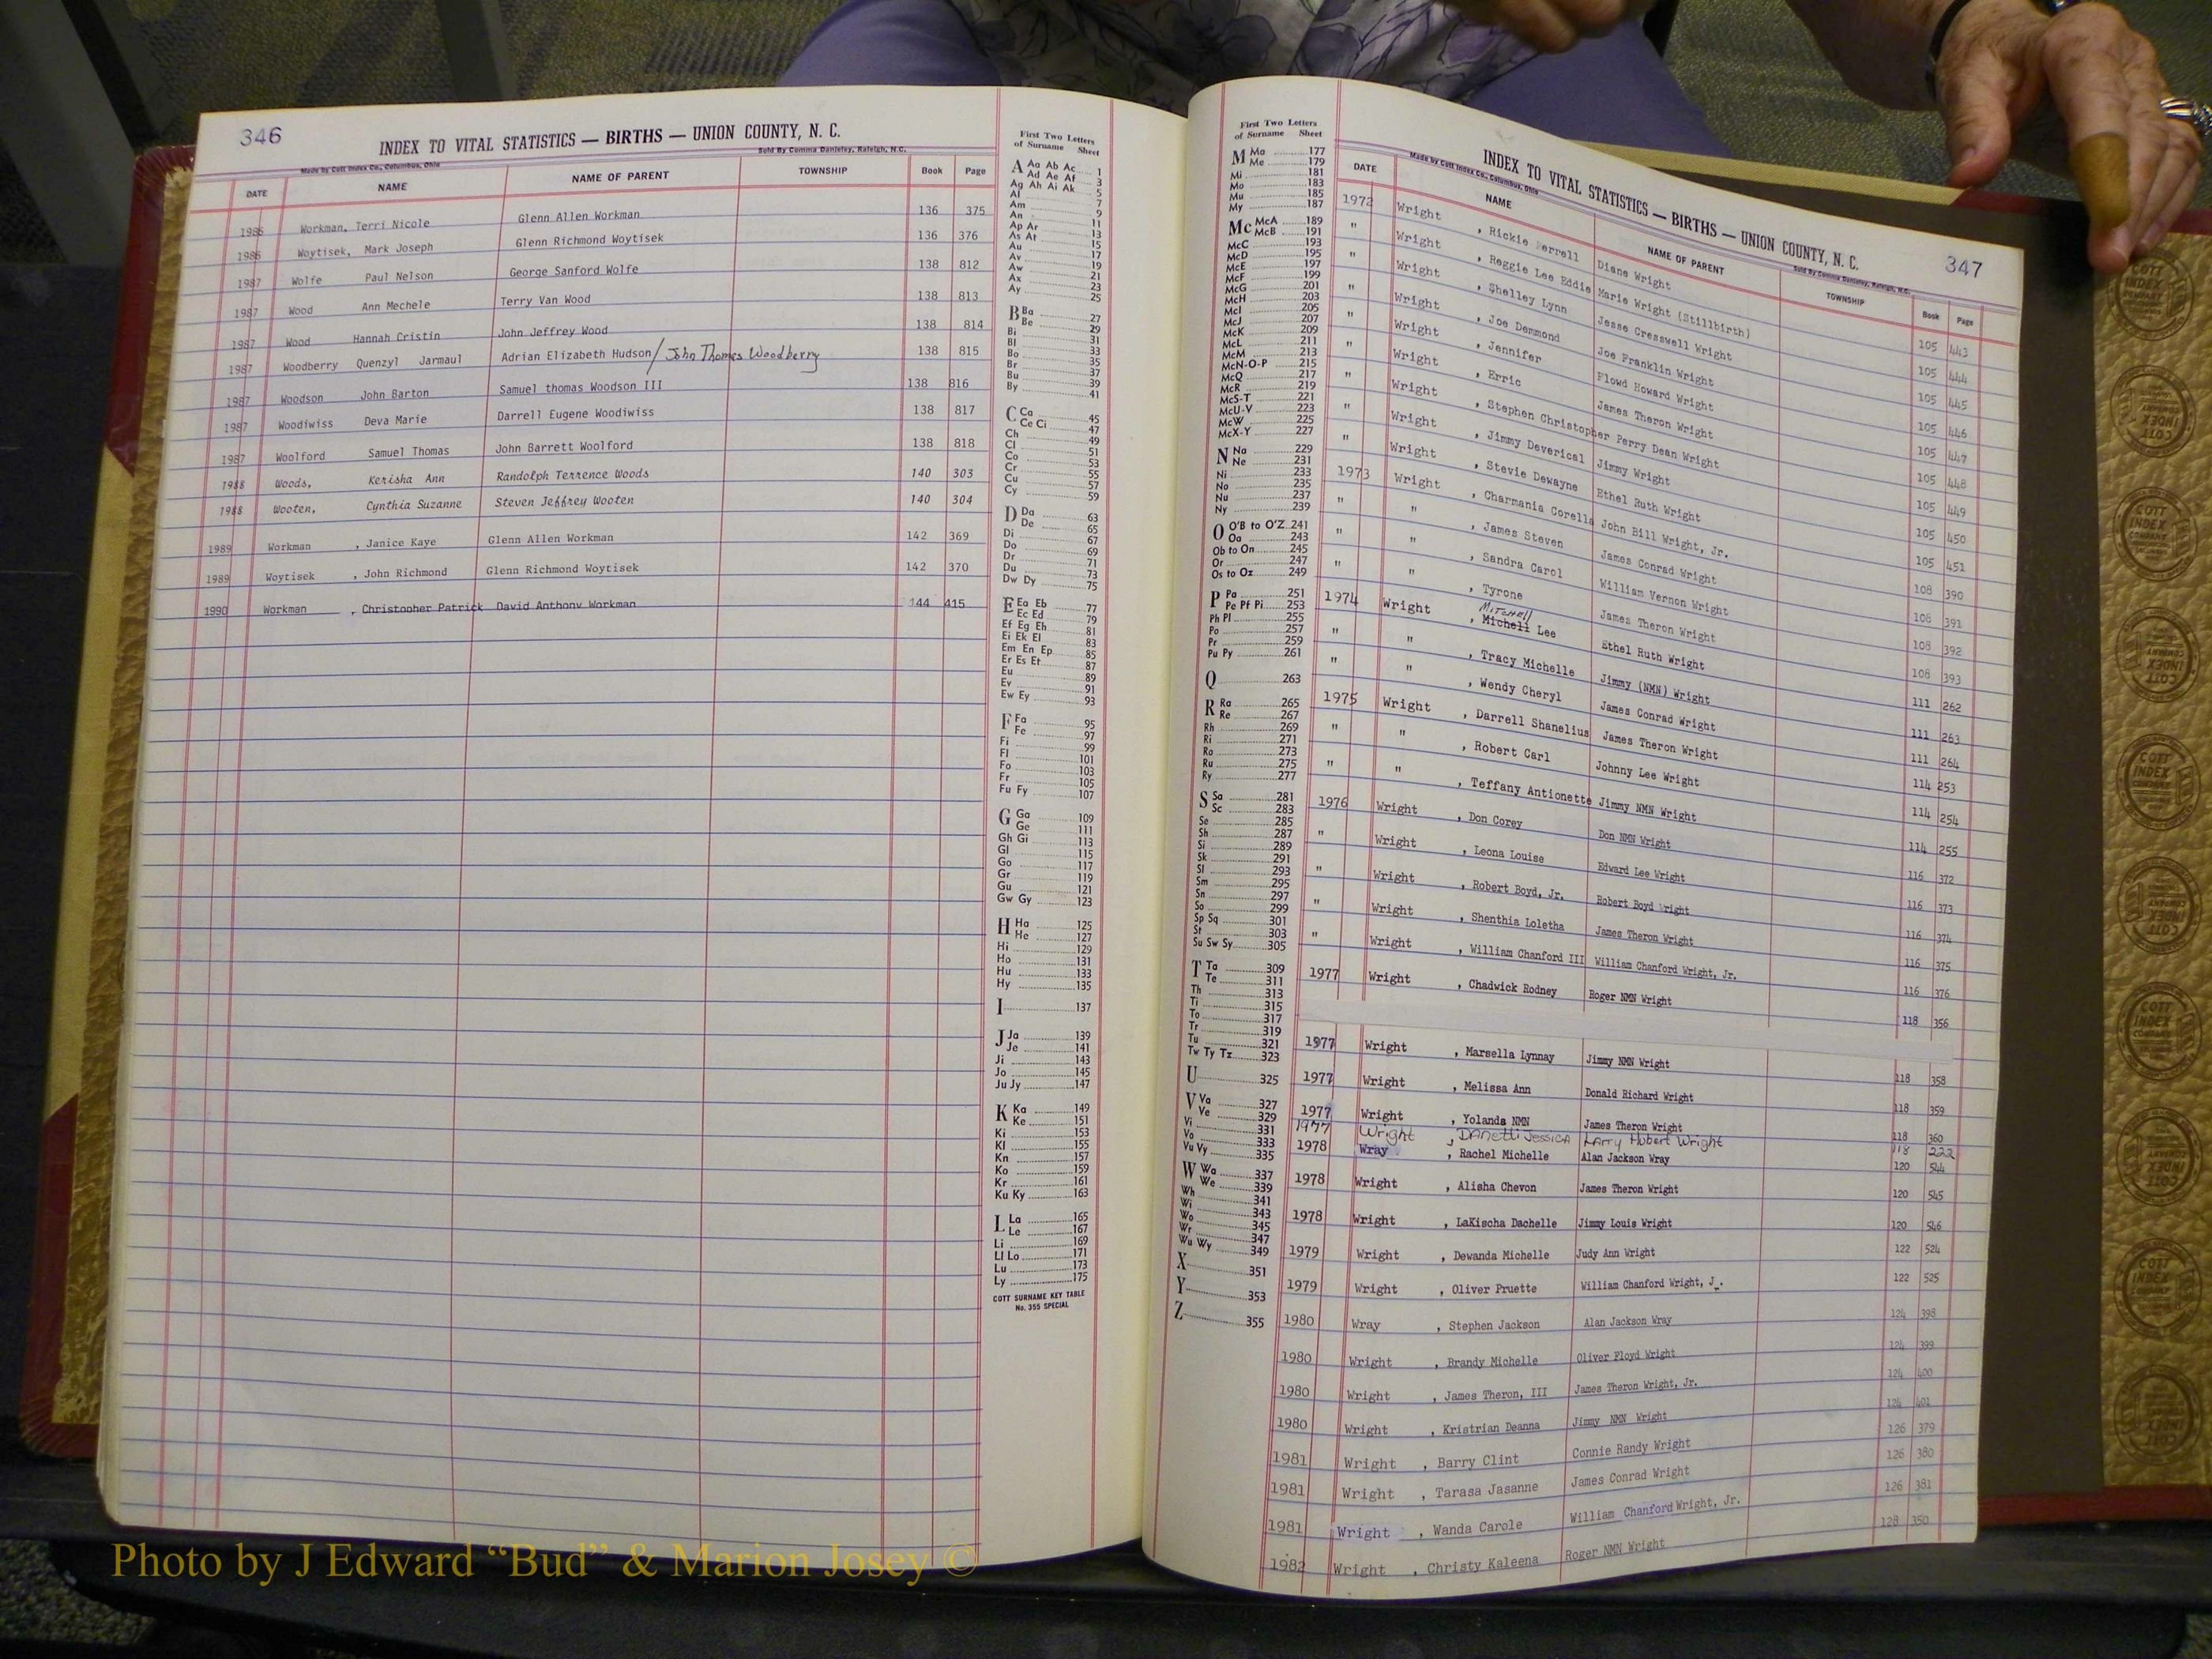 346
INDEX TO VITAL STATISTICS — BIRTHS — UNION COUNTY, N. C.
Made by Cott Index Co., Columbus, Ohio Sold By Comma Danieley, Raleigh, N.C.
DATE NAME NAME OF PARENT TOWNSHIP Book Page
1986 Workman, Terri Nicole Glenn Allen Workman 136 375
1986 Woytisek, Mark Joseph Glenn Richmond Woytisek 136 376
1987 Wolfe Paul Nelson George Sanford Wolfe 138 812
1987 Wood Ann Mechele Terry Van Wood 138 813
1987 Wood Hannah Cristin John Jeffrey Wood 138 814
1987 Woodberry Quenzyl Jarmaul Adrian Elizabeth Hudson/John Thomas Woodberry 138 815
1987 Woodson John Barton Samuel thomas Woodson III 138 816
1987 Woodiwiss Deva Marie Darrell Eugene Woodiwiss 138 817
1987 Woolford Samuel Thomas John Barrett Woolford 138 818
1988 Woods, Kerisha Ann Randolph Terrence Woods 140 303
1988 Wooten, Cynthia Suzanne Steven Jeffrey Wooten 140 304
1989 Workman , Janice Kaye Glenn Allen Workman 142 369
1989 Woytisek , John Richmond Glenn Richmond Woytisek 142 370
1990 Workman , Christopher Patrick David Anthony Workman 144 415
First Two Letters
of Surname Sheet
A Aa Ab Ac 1
Ad Ae Af 3
Ag Ah Ai Ak 5
Al 7
Am 9
An 11
Ap Ar 13
As At 15
Au 17
Av 19
Aw 21
Ax 23
Ay 25
B Ba 27
Be 29
Bi 31
Bl 33
Bo 35
Br 37
Bu 39
By 41
C Ca 45
Ce Ci 47
Ch 49
Cl 51
Co 53
Cr 55
Cu 57
Cy 59
D Da 63
De 65
Di 67
Do 69
Dr 71
Du 73
Dw Dy 75
E Ea Eb 77
Ec Ed 79
Ef Eg Eh 81
Ei Ek El 83
Em En Ep 85
Er Es Et 87
Eu 89
Ev 91
Ew Ey 93
F Fa 95
Fe 97
Fi 99
Fl 101
Fo 103
Fr 105
Fu Fy 107
G Ga 109
Ge 111
Gh Gi 113
Gl 115
Go 117
Gr 119
Gu 121
Gw Gy 123
H Ha 125
He 127
Hi 129
Ho 131
Hu 133
Hy 135
I 137
J Ja 139
Je 141
Ji 143
Jo 145
Ju Jy 147
K Ka 149
Ke 151
Ki 153
Kl 155
Kn 157
Ko 159
Kr 161
Ku Ky 163
L La 165
Le 167
Li 169
Ll Lo 171
Lu 173
Ly 175
COTT SURNAME KEY TABLE
No. 355 SPECIAL
First Two Letters
of Surname Sheet
M Ma 177
Me 179
Mi 181
Mo 183
Mu 185
My 187
Mc McA 189
McB 191
McC 193
McD 195
McE 197
McF 199
McG 201
McH 203
McI 205
McJ 207
McK 209
McL 211
McM 213
McN-O-P 215
McQ 217
McR 219
McS-T 221
McU-V 223
McW 225
McX-Y 227
N Na 229
Ne 231
Ni 233
No 235
Nu 237
Ny 239
O O'B to O'Z 241
Oa 243
Ob to On 245
Or 247
Os to Oz 249
P Pa 251
Pe Pf Pi 253
Ph Pl 255
Po 257
Pr 259
Pu Py 261
Q 263
R Ra 265
Re 267
Rh 269
Ri 271
Ro 273
Ru 275
Ry 277
S Sa 281
Sc 283
Se 285
Sh 287
Si 289
Sk 291
Sl 293
Sm 295
Sn 297
So 299
Sp Sq 301
St 303
Su Sw Sy 305
T Ta 309
Te 311
Th 313
Ti 315
To 317
Tr 319
Tu 321
Tw Ty Tz 323
U 325
V Va 327
Ve 329
Vi 331
Vo 333
Vu Vy 335
W Wa 337
We 339
Wh 341
Wi 343
Wo 345
Wr 347
Wu Wy 349
X 351
Y 353
Z 355
347
INDEX TO VITAL STATISTICS — BIRTHS — UNION COUNTY, N. C.
Made by Cott Index Co., Columbus, Ohio Sold By Comma Danieley, Raleigh, N.C.
DATE NAME NAME OF PARENT TOWNSHIP Book Page
1972 Wright , Rickie Diane Wright 105 443
" Wright , Reggie Lee Eddie Marie Wright (Stillbirth) 105 444
" Wright , Shelley Lynn Jesse Cresswell Wright 105 445
" Wright , Joe Demmond Joe Franklin Wright 105 446
" Wright , Jennifer Flowd Howard Wright 105 447
" Wright , Erric James Theron Wright 105 448
" Wright , Stephen Christopher Perry Dean Wright 105 449
" Wright , Jimmy Deverical Jimmy Wright 105 450
" Wright , Stevie Dewayne Ethel Ruth Wright 105 451
1973 Wright , Charmania Corella John Bill Wright, Jr. 108 390
" " , James Steven James Conrad Wright 108 391
" " , Sandra Carol William Vernon Wright 108 392
" " , Tyrone James Theron Wright 108 393
1974 Wright , Michell MITCHELL Lee Ethel Ruth Wright 111 262
" " , Tracy Michelle Jimmy (NMN) Wright 111 263
" " , Wendy Cheryl James Conrad Wright 111 264
1975 Wright , Darrell Shanelius James Theron Wright 114 253
" " , Robert Carl Johnny Lee Wright 114 254
" " , Teffany Antionette Jimmy NMN Wright 114 255
1976 Wright , Don Corey Don NMN Wright 116 372
" Wright , Leona Louise Edward Lee Wright 116 373
" Wright , Robert Boyd, Jr. Robert Boyd Wright 116 374
" Wright , Shenthia Loletha James Theron Wright 116 375
" Wright , William Chanford III William Chanford Wright, Jr. 116 376
1977 Wright , Chadwick Rodney Roger NMN Wright 118 356
1977 Wright , Marsella Lynnay Jimmy NMN Wright 118 358
1977 Wright , Melissa Ann Donald Richard Wright 118 359
1977 Wright , Yolanda NMN James Theron Wright 118 360
1977 Wright , DANetti JessicA LArry Hubert Wright 118 222
1978 Wray , Rachel Michelle Alan Jackson Wray 120 544
1978 Wright , Alisha Chevon James Theron Wright 120 545
1978 Wright , LaKischa Dachelle Jimmy Louis Wright 120 546
1979 Wright , Dewanda Michelle Judy Ann Wright 122 524
1979 Wright , Oliver Pruette William Chanford Wright, J . 122 525
1980 Wray , Stephen Jackson Alan Jackson Wray 124 398
1980 Wright , Brandy Michelle Oliver Floyd Wright 124 399
1980 Wright , James Theron, III James Theron Wright, Jr. 124 400
1980 Wright , Kristrian Deanna Jimmy NMN Wright 124 401
1981 Wright , Barry Clint Connie Randy Wright 126 379
1981 Wright , Tarasa Jasanne James Conrad Wright 126 380
1981 Wright , Wanda Carole William Chanford Wright, Jr. 126 381
1982 Wright , Christy Kaleena Roger NMN Wright 128 350
COTT INDEX COMPANY
Photo by J Edward “Bud” & Marion Josey ©